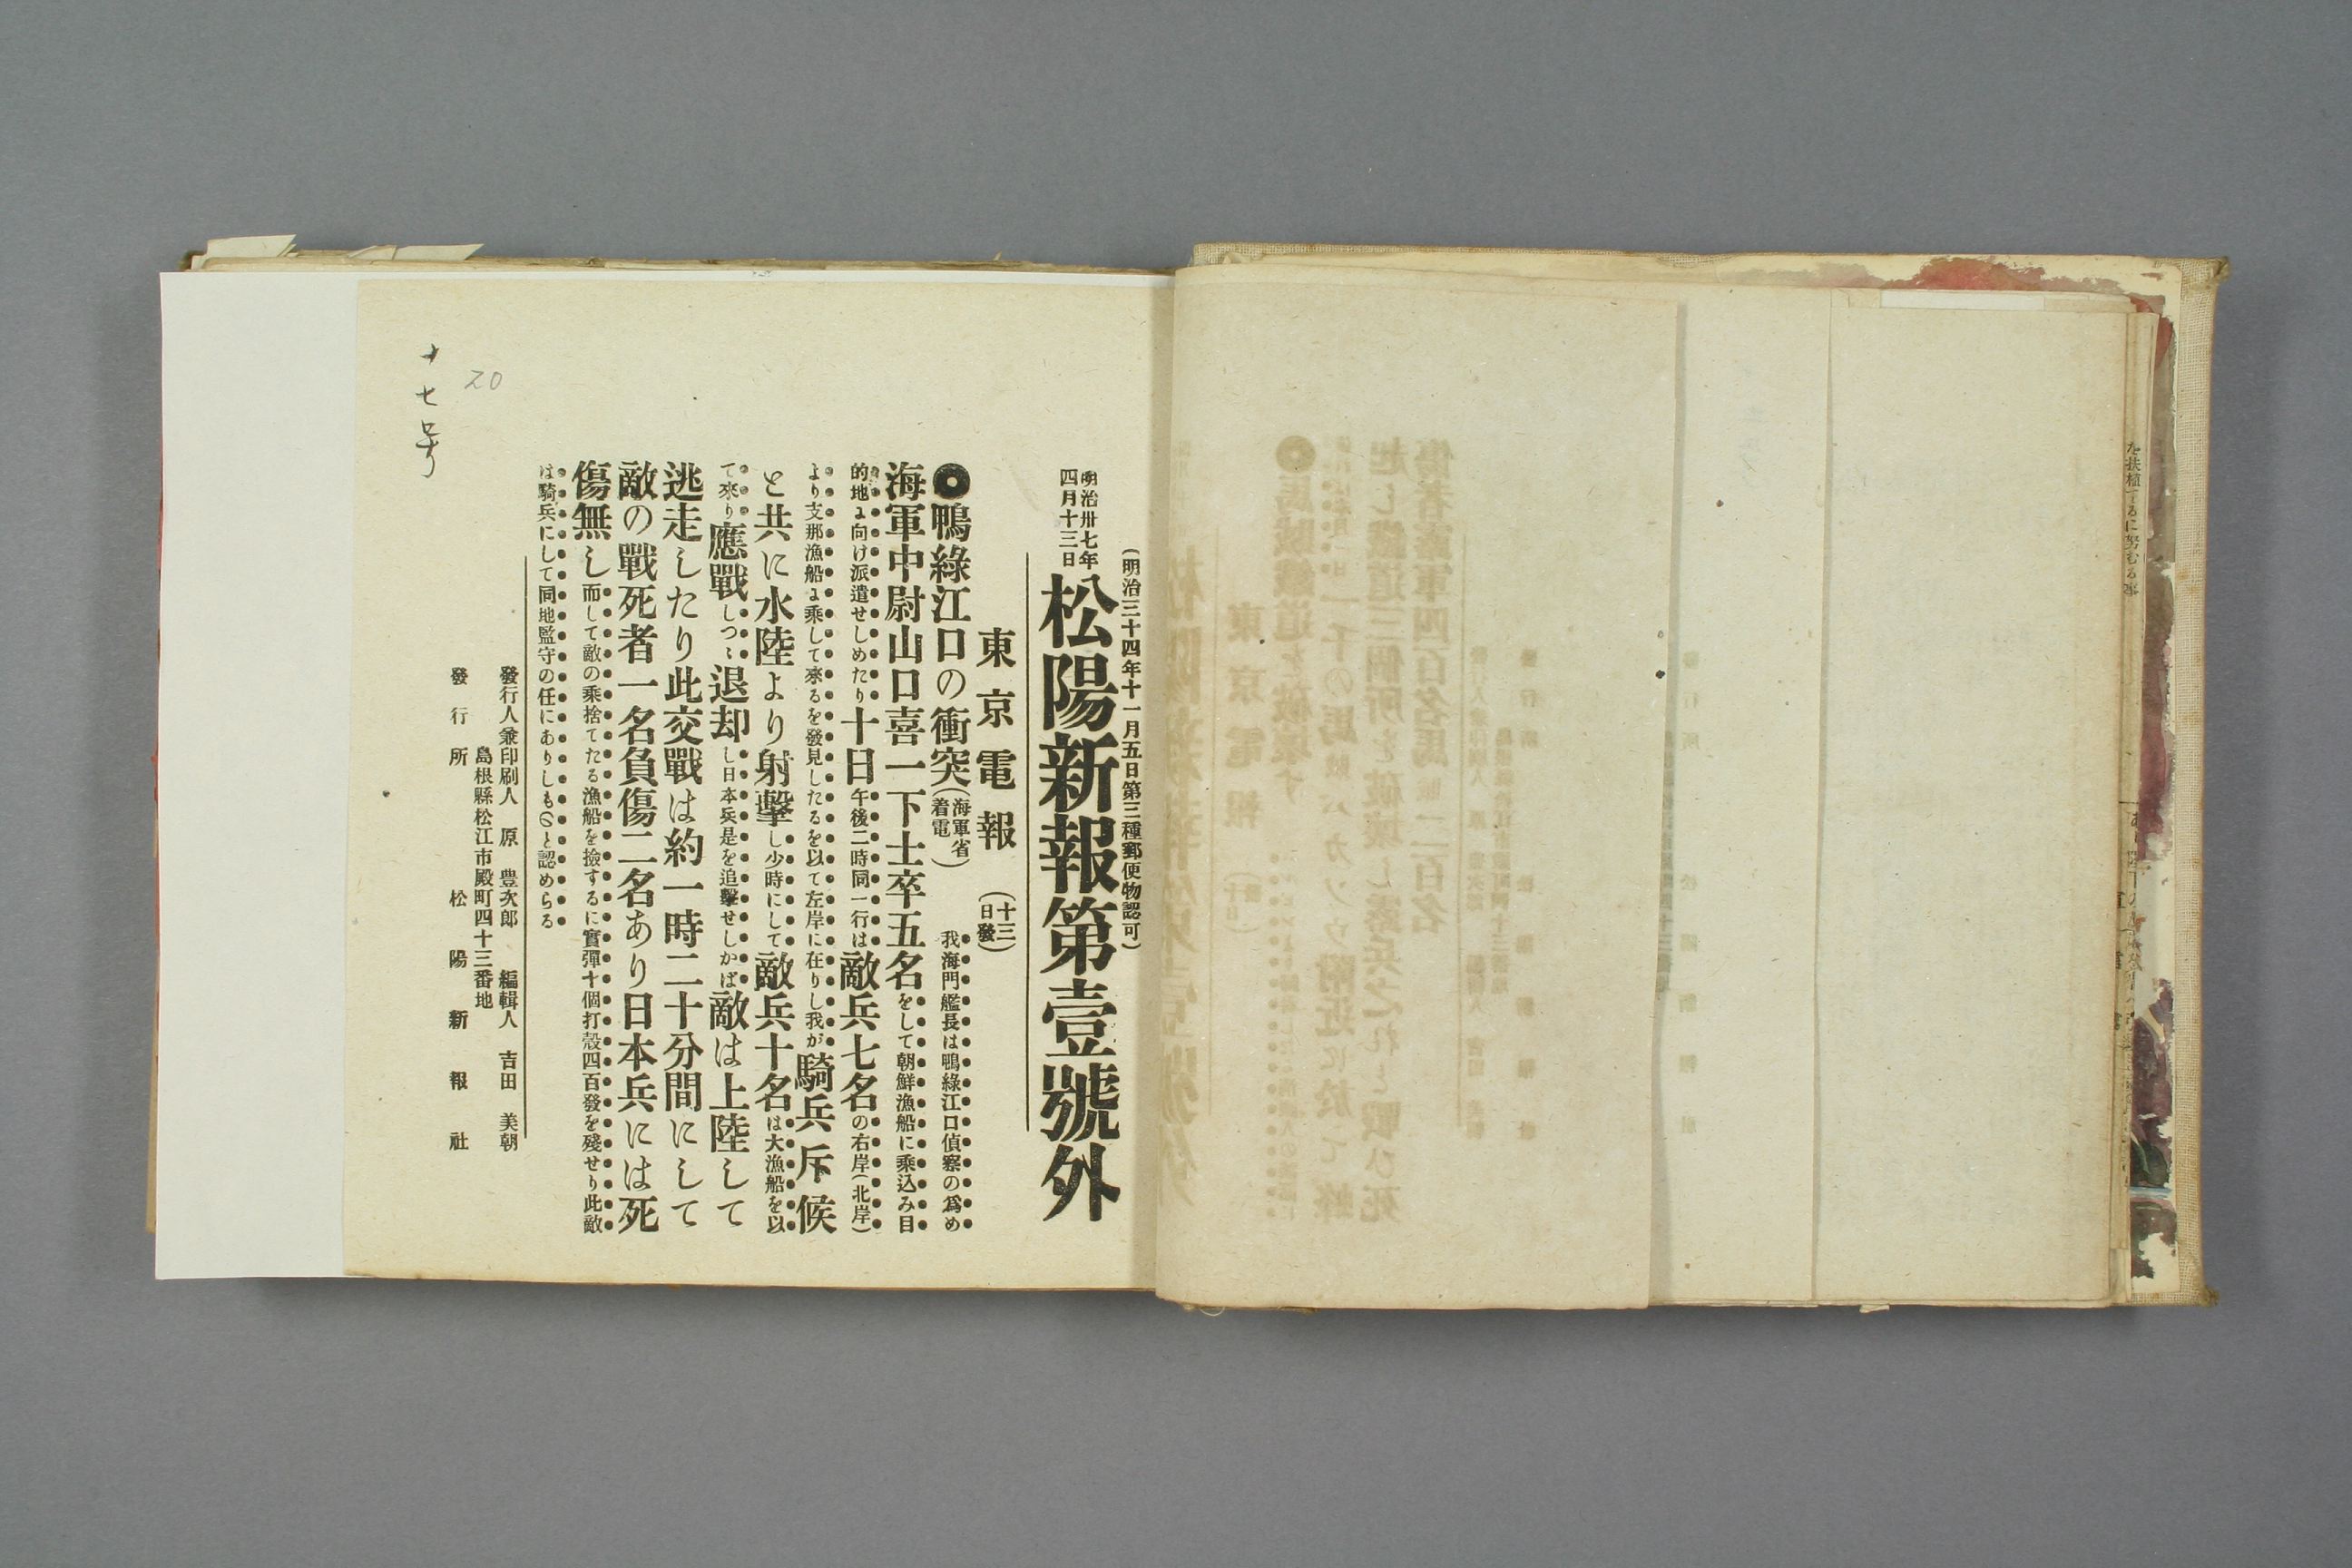 (明治三十四年十一月五日第三種郵便物認可)
明治卅七年
四月十三日
松陽新報第壹號外
東京電報
(十三日發)
◉鴨綠江口の衝突(海軍省着電)我海門艦長は鴨綠江口偵察の爲め
海軍中尉山口喜一下士卒五名をして朝鮮漁船に乗込み目
的地に向け派遣せしめたり十日午後二時同一行は敵兵七名の右岸(北岸)
より支那漁船に乗して來るを發見したるを以て左岸に在りし我が騎兵斥候
と共に水陸より射擊し少時にして敵兵十名は大漁船を以
て來り應戰しつゝ退却し日本兵是を追擊せしかば敵は上陸して
逃走したり此交戰は約一時二十分間にして
敵の戰死者一名負傷二名あり日本兵には死
傷無し而して敵の乗捨てたる漁船を撿するに實彈十個打殼四百發を殘せり此敵
は騎兵にして同地監守の任にありしものと認めらる
發行人兼印刷人 原 豊次郎 編輯人 吉田 美朝
島根縣松江市殿町四十三番地
發行所 松陽新報社
20
十七号